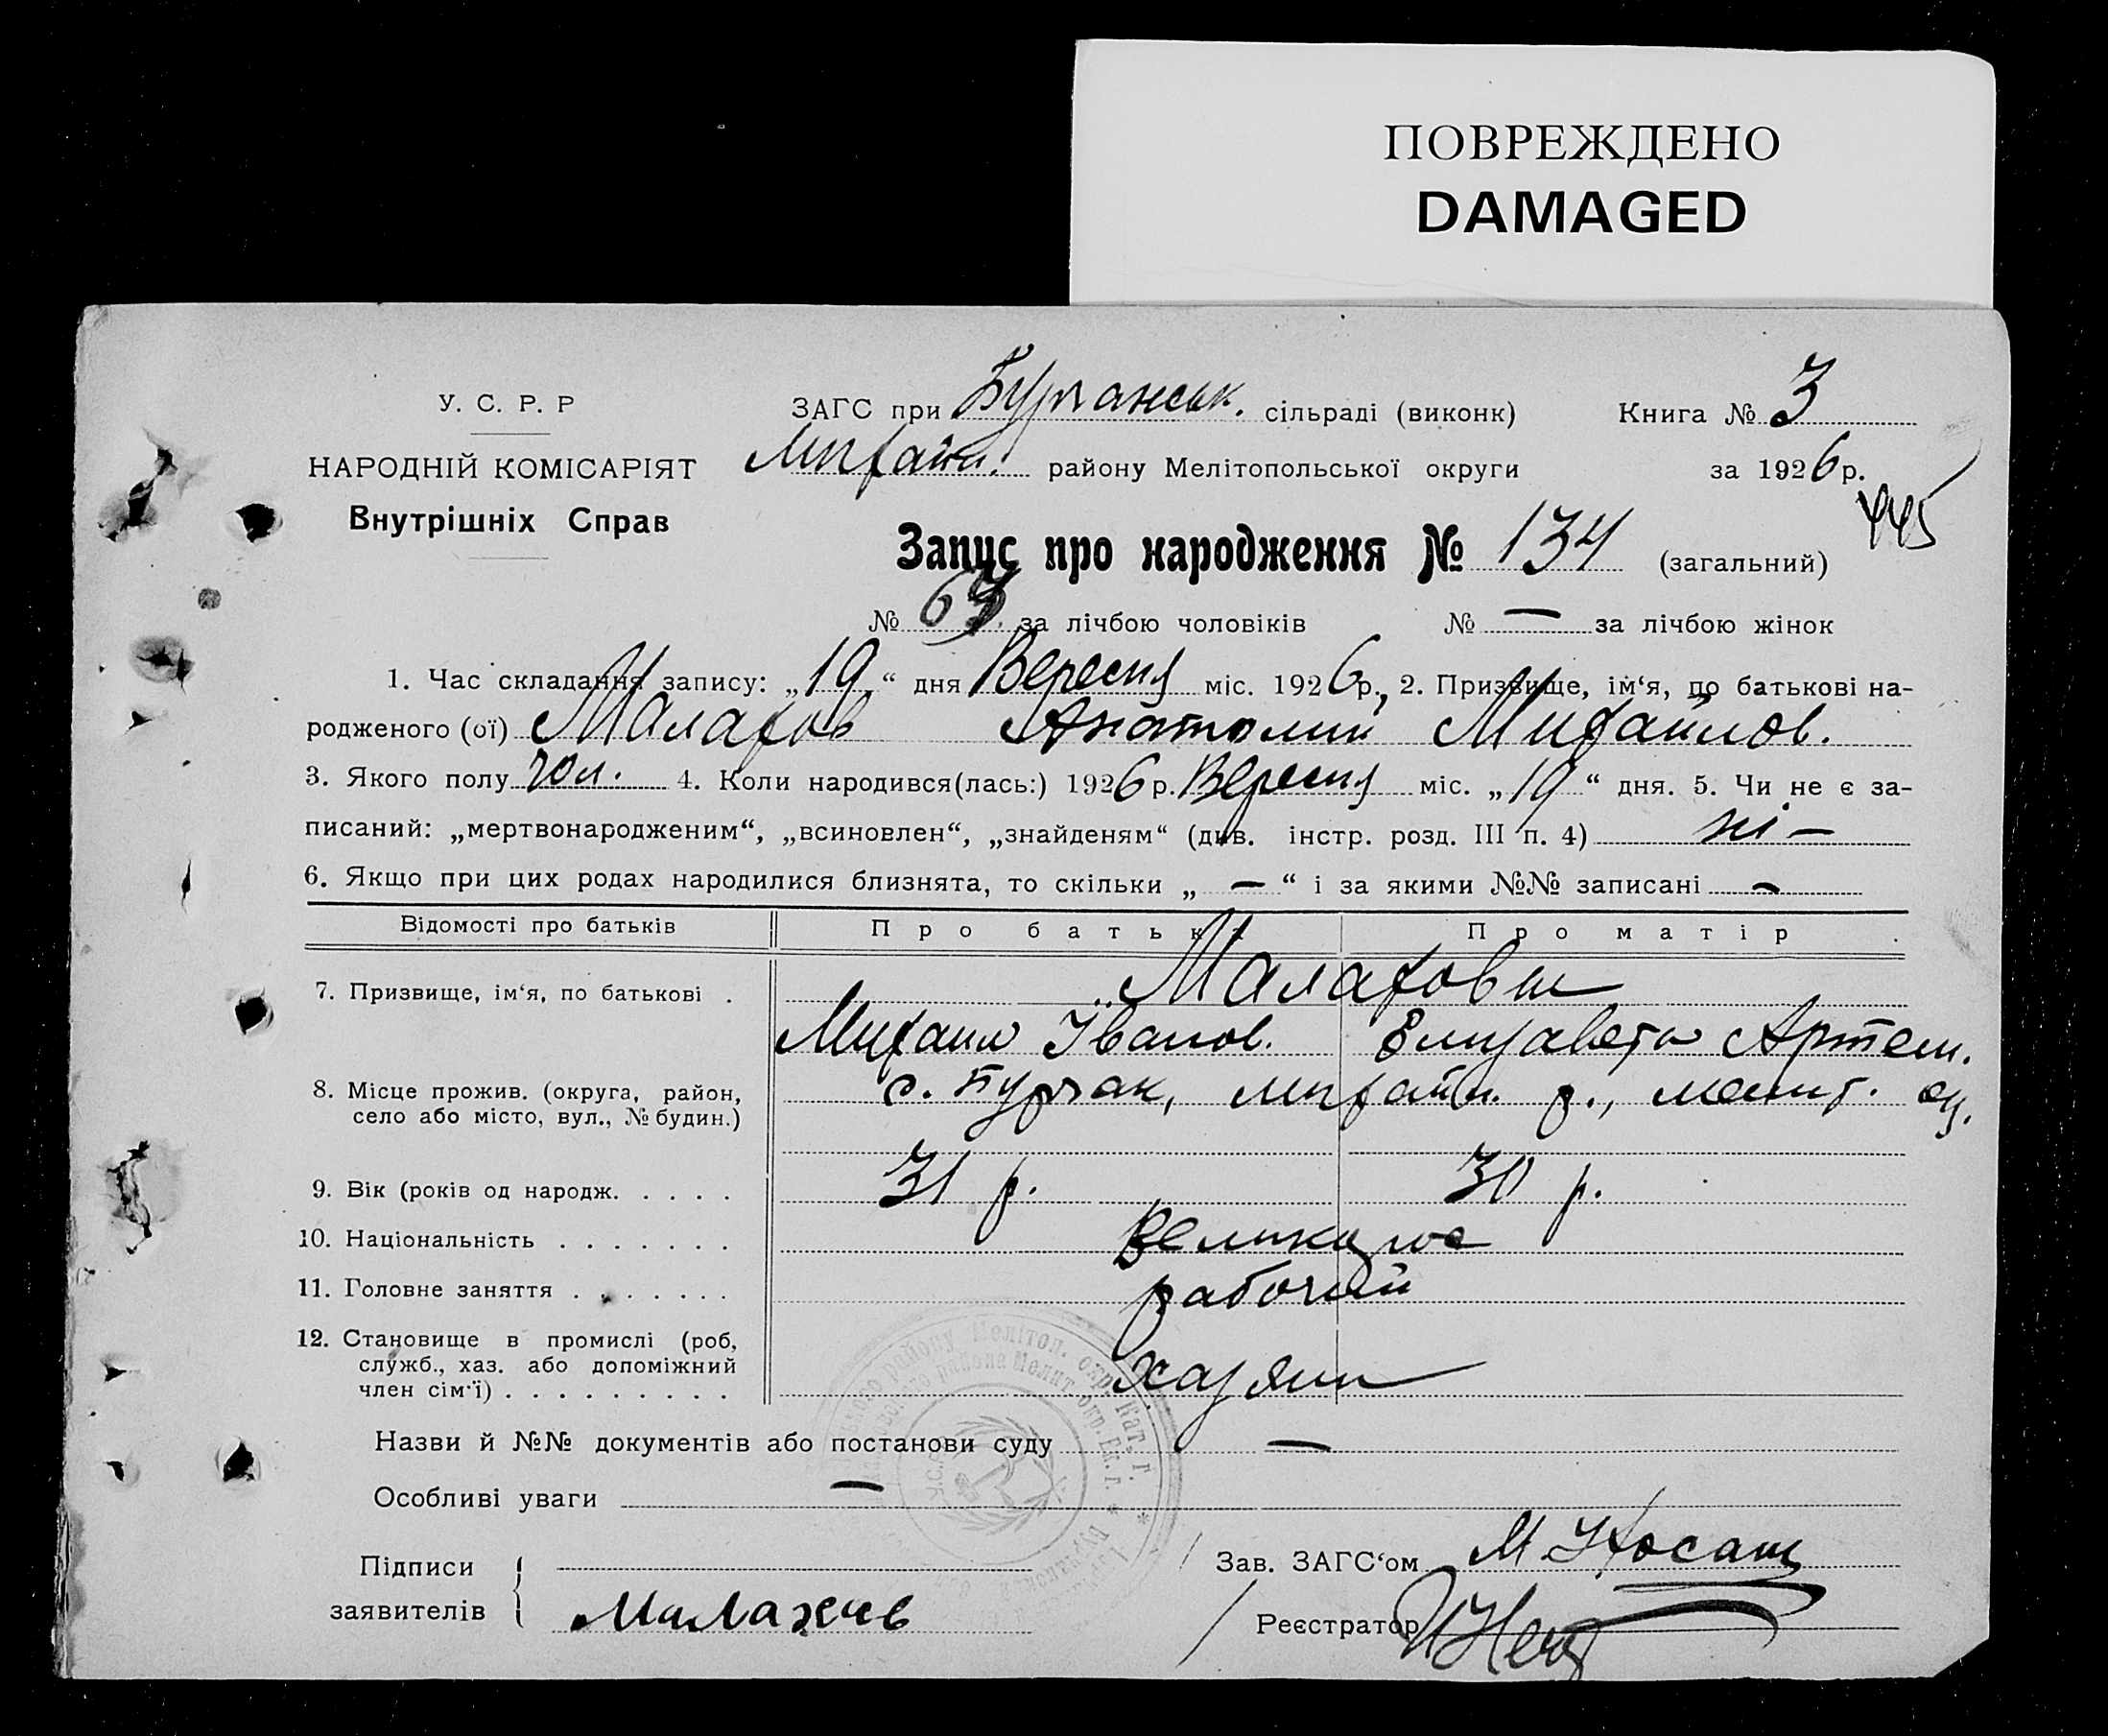 ПОВРЕЖДЕНО
DAMAGED
У. С. Р. Р
НАРОДНІЙ КОМІСАРІЯТ
Внутрішніх Справ
ЗАГС при Бурчанськ. сільраді (виконк) Книга № 3
Михайл. району Мелітопольської округи за 1926 р.
445
Запис про народження № 134 (загальний)
№ 63 за лічбою чоловіків № — за лічбою жінок
1. Час складання запису: „19“ дня Вересня міс. 1926 р., 2. Призвище, ім‘я, по батькові на-
родженого (ої) Малахов Анатолий Михайлов.
3. Якого полу чол. 4. Коли народився(лась:) 1926 р. Вересня міс. „19“ дня. 5. Чи не є за-
писаний: „мертвонародженим“, „всиновлен“, „знайденям“ (див. інстр. розд. III п. 4) ні —
6. Якщо при цих родах народилися близнята, то скільки „ — “ і за якими №№ записані —
Відомості про батьків Про батька Про матір
7. Призвище, ім‘я, по батькові . Малаховы
Михаил Іванов. Елизавета Артем.
8. Місце прожив. (округа, район, село або місто, вул., № будин.) с. Бурчак, Михайл. р., Мелит. ок.
9. Вік (років од народж. . . . . 31 р. 30 р.
10. Національність . . . . . . . Великорос
11. Головне заняття . . . . . . . рабочий
12. Становище в промислі (роб,
служб., хаз. або допоміжний
член сім‘ї) . . . . . . . . . хазяин
Назви й №№ документів або постанови суду —
Особливі уваги —
Підписи
заявителів Малахов
Зав. ЗАГС‘ом М. Носань
Реєстратор